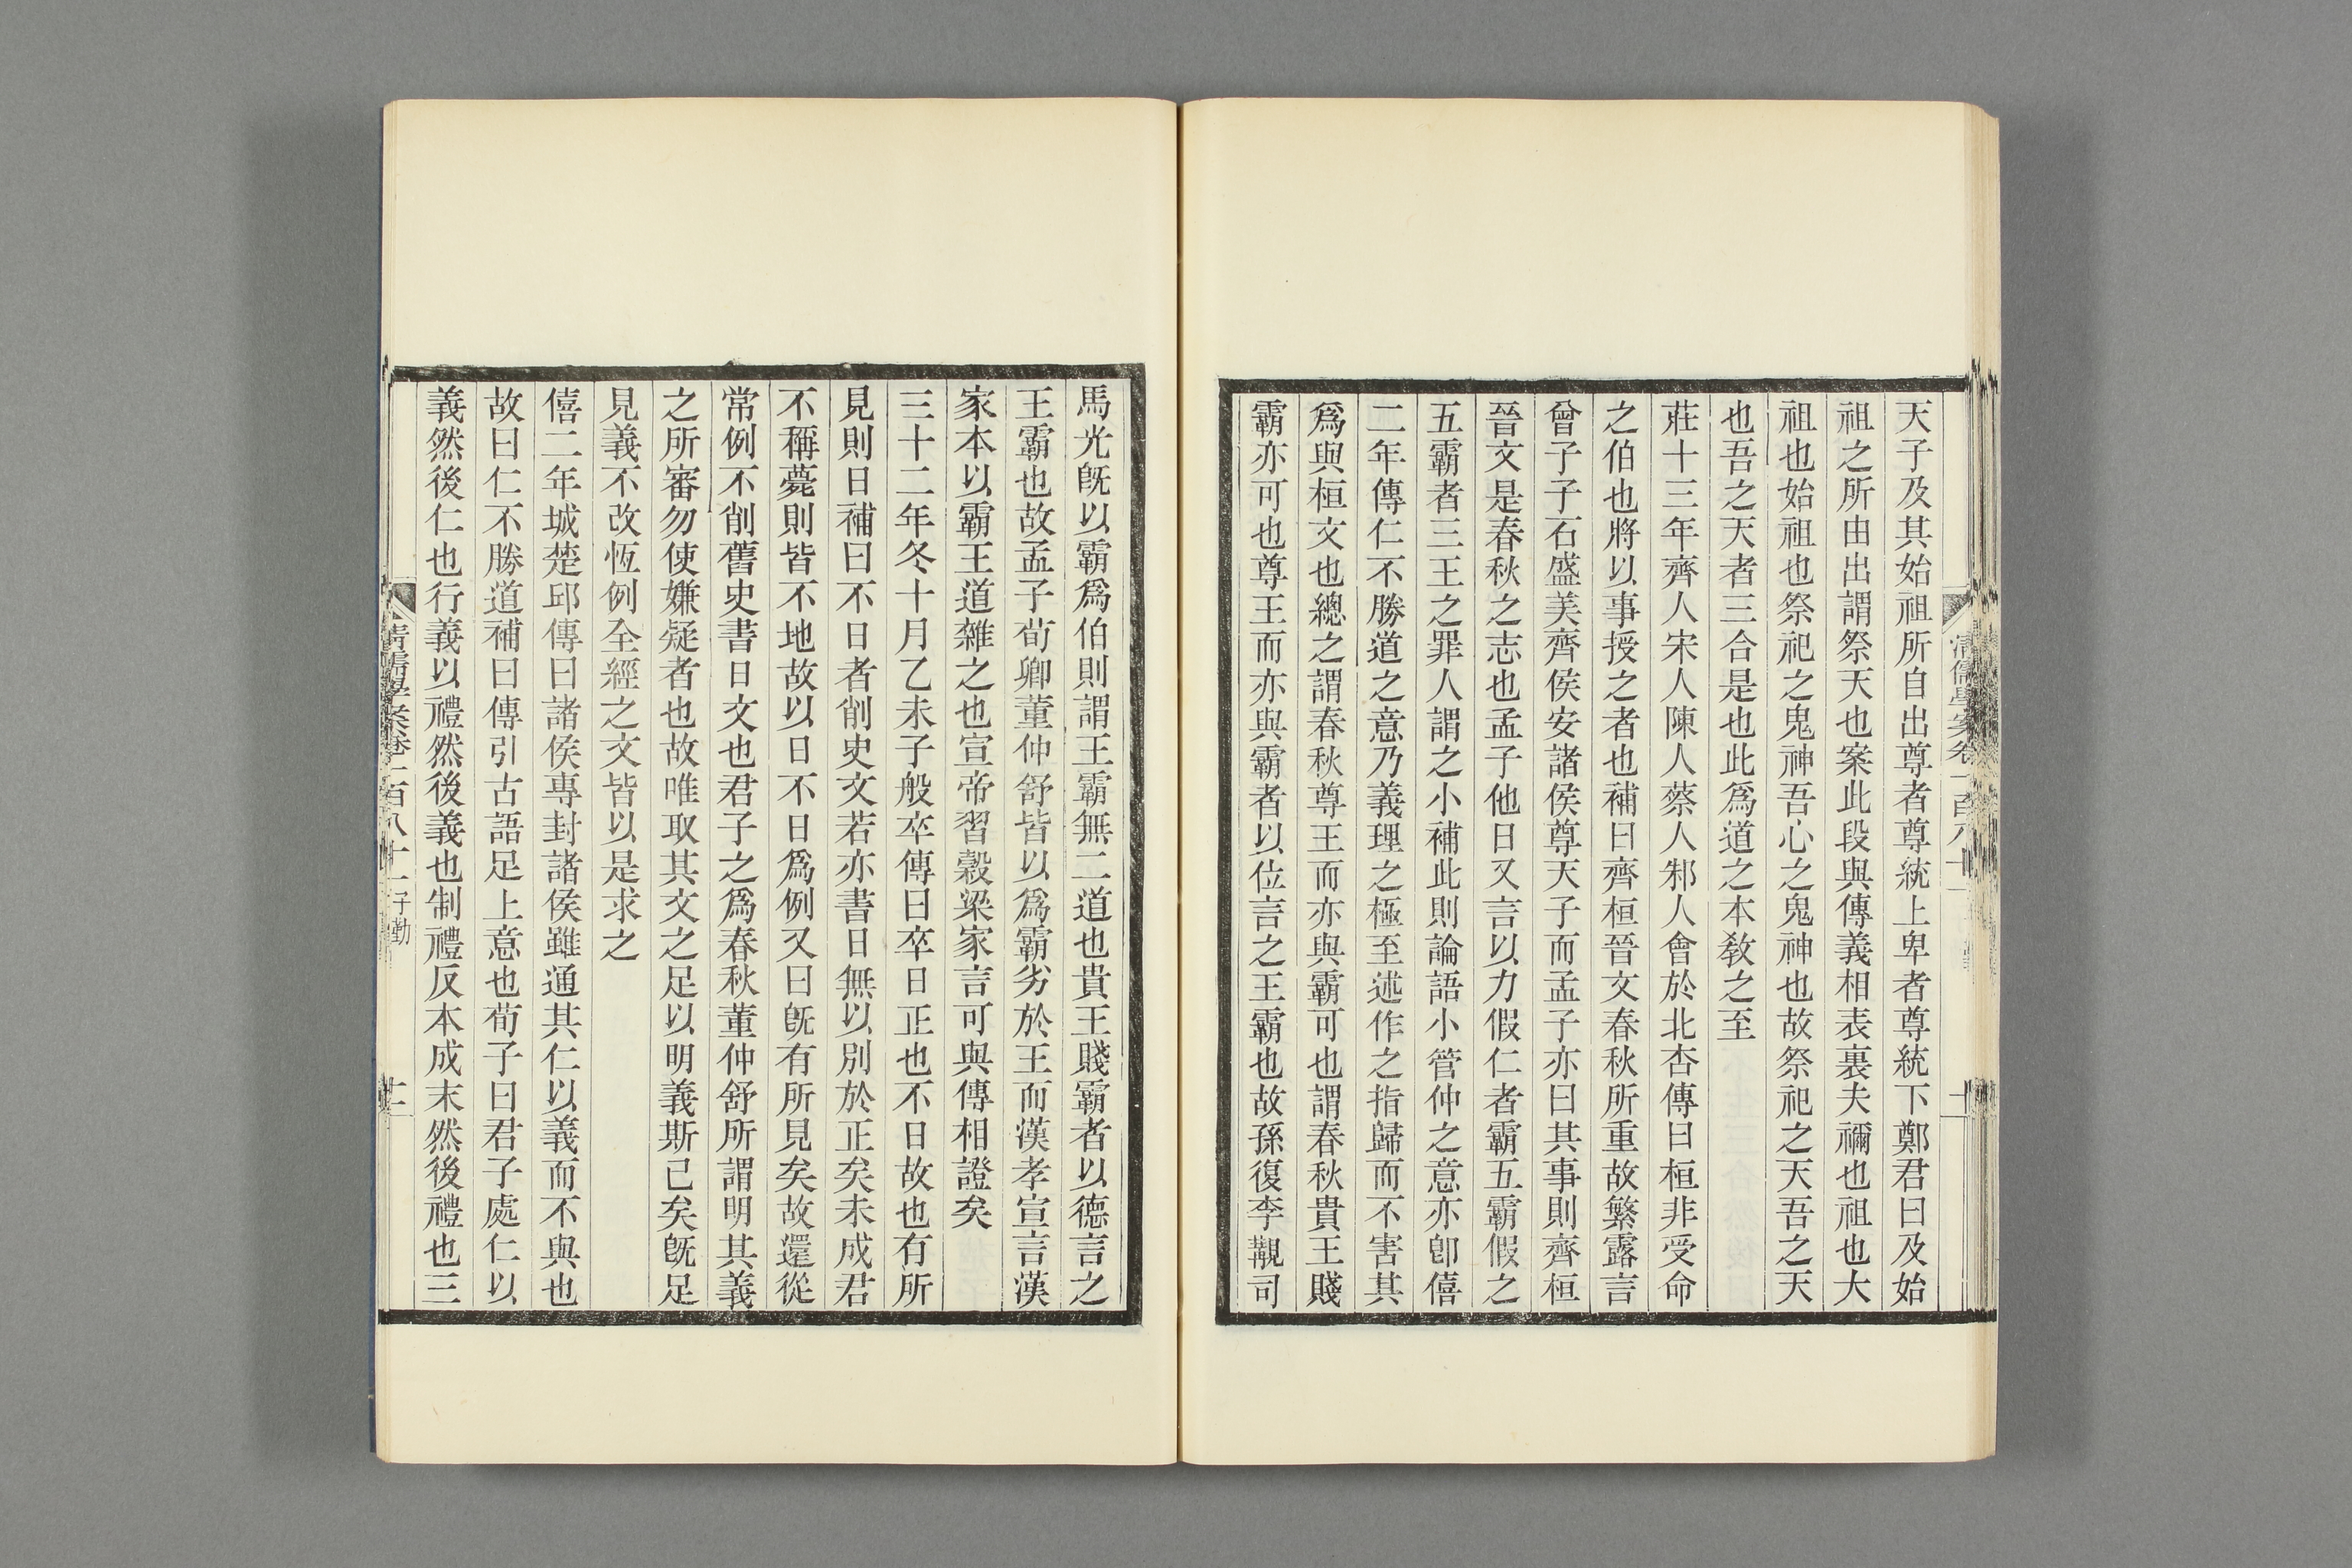 天子及其始祖所自出尊者尊統上卑者尊統下鄭君曰及始
祖之所由出謂祭天也案此段與傳義相表裏夫禰也祖也大
祖也始祖也祭祀之鬼神吾心之鬼神也故祭祀之天吾之天
也吾之天者三合是也此爲道之本敎之至
莊十三年齊人宋人陳人蔡人邾人會於北杏傳曰桓非受命
之伯也將以事授之者也補曰齊桓晉文春秋所重故繁露言
曾子子石盛美齊侯安諸侯尊天子而孟子亦曰其事則齊桓
晉文是春秋之志也孟子他日又言以力假仁者霸五霸假之
五霸者三王之罪人謂之小補此則論語小管仲之意亦卽僖
二年傳仁不勝道之意乃義理之極至述作之指歸而不害其
爲與桓文也總之謂春秋尊王而亦與霸可也謂春秋貴王賤
霸亦可也尊王而亦與霸者以位言之王霸也故孫復李覯司
馬光旣以霸爲伯則謂王霸無二道也貴王賤霸者以德言之
王霸也故孟子荀卿董仲舒皆以爲霸劣於王而漢孝宣言漢
家本以霸王道雜之也宣帝習穀梁家言可與傳相證矣
三十二年冬十月乙未子般卒傳曰卒日正也不日故也有所
見則日補曰不日者削史文若亦書日無以別於正矣未成君
不稱薨則皆不地故以日不日爲例又曰旣有所見矣故還從
常例不削舊史書日文也君子之爲春秋董仲舒所謂明其義
之所審勿使嫌疑者也故唯取其文之足以明義斯已矣旣足
見義不改恆例全經之文皆以是求之
僖二年城楚邱傳曰諸侯專封諸侯雖通其仁以義而不與也
故曰仁不勝道補曰傳引古語足上意也荀子曰君子處仁以
義然後仁也行義以禮然後義也制禮反本成末然後禮也三
清儒學案卷一百八十一子勤